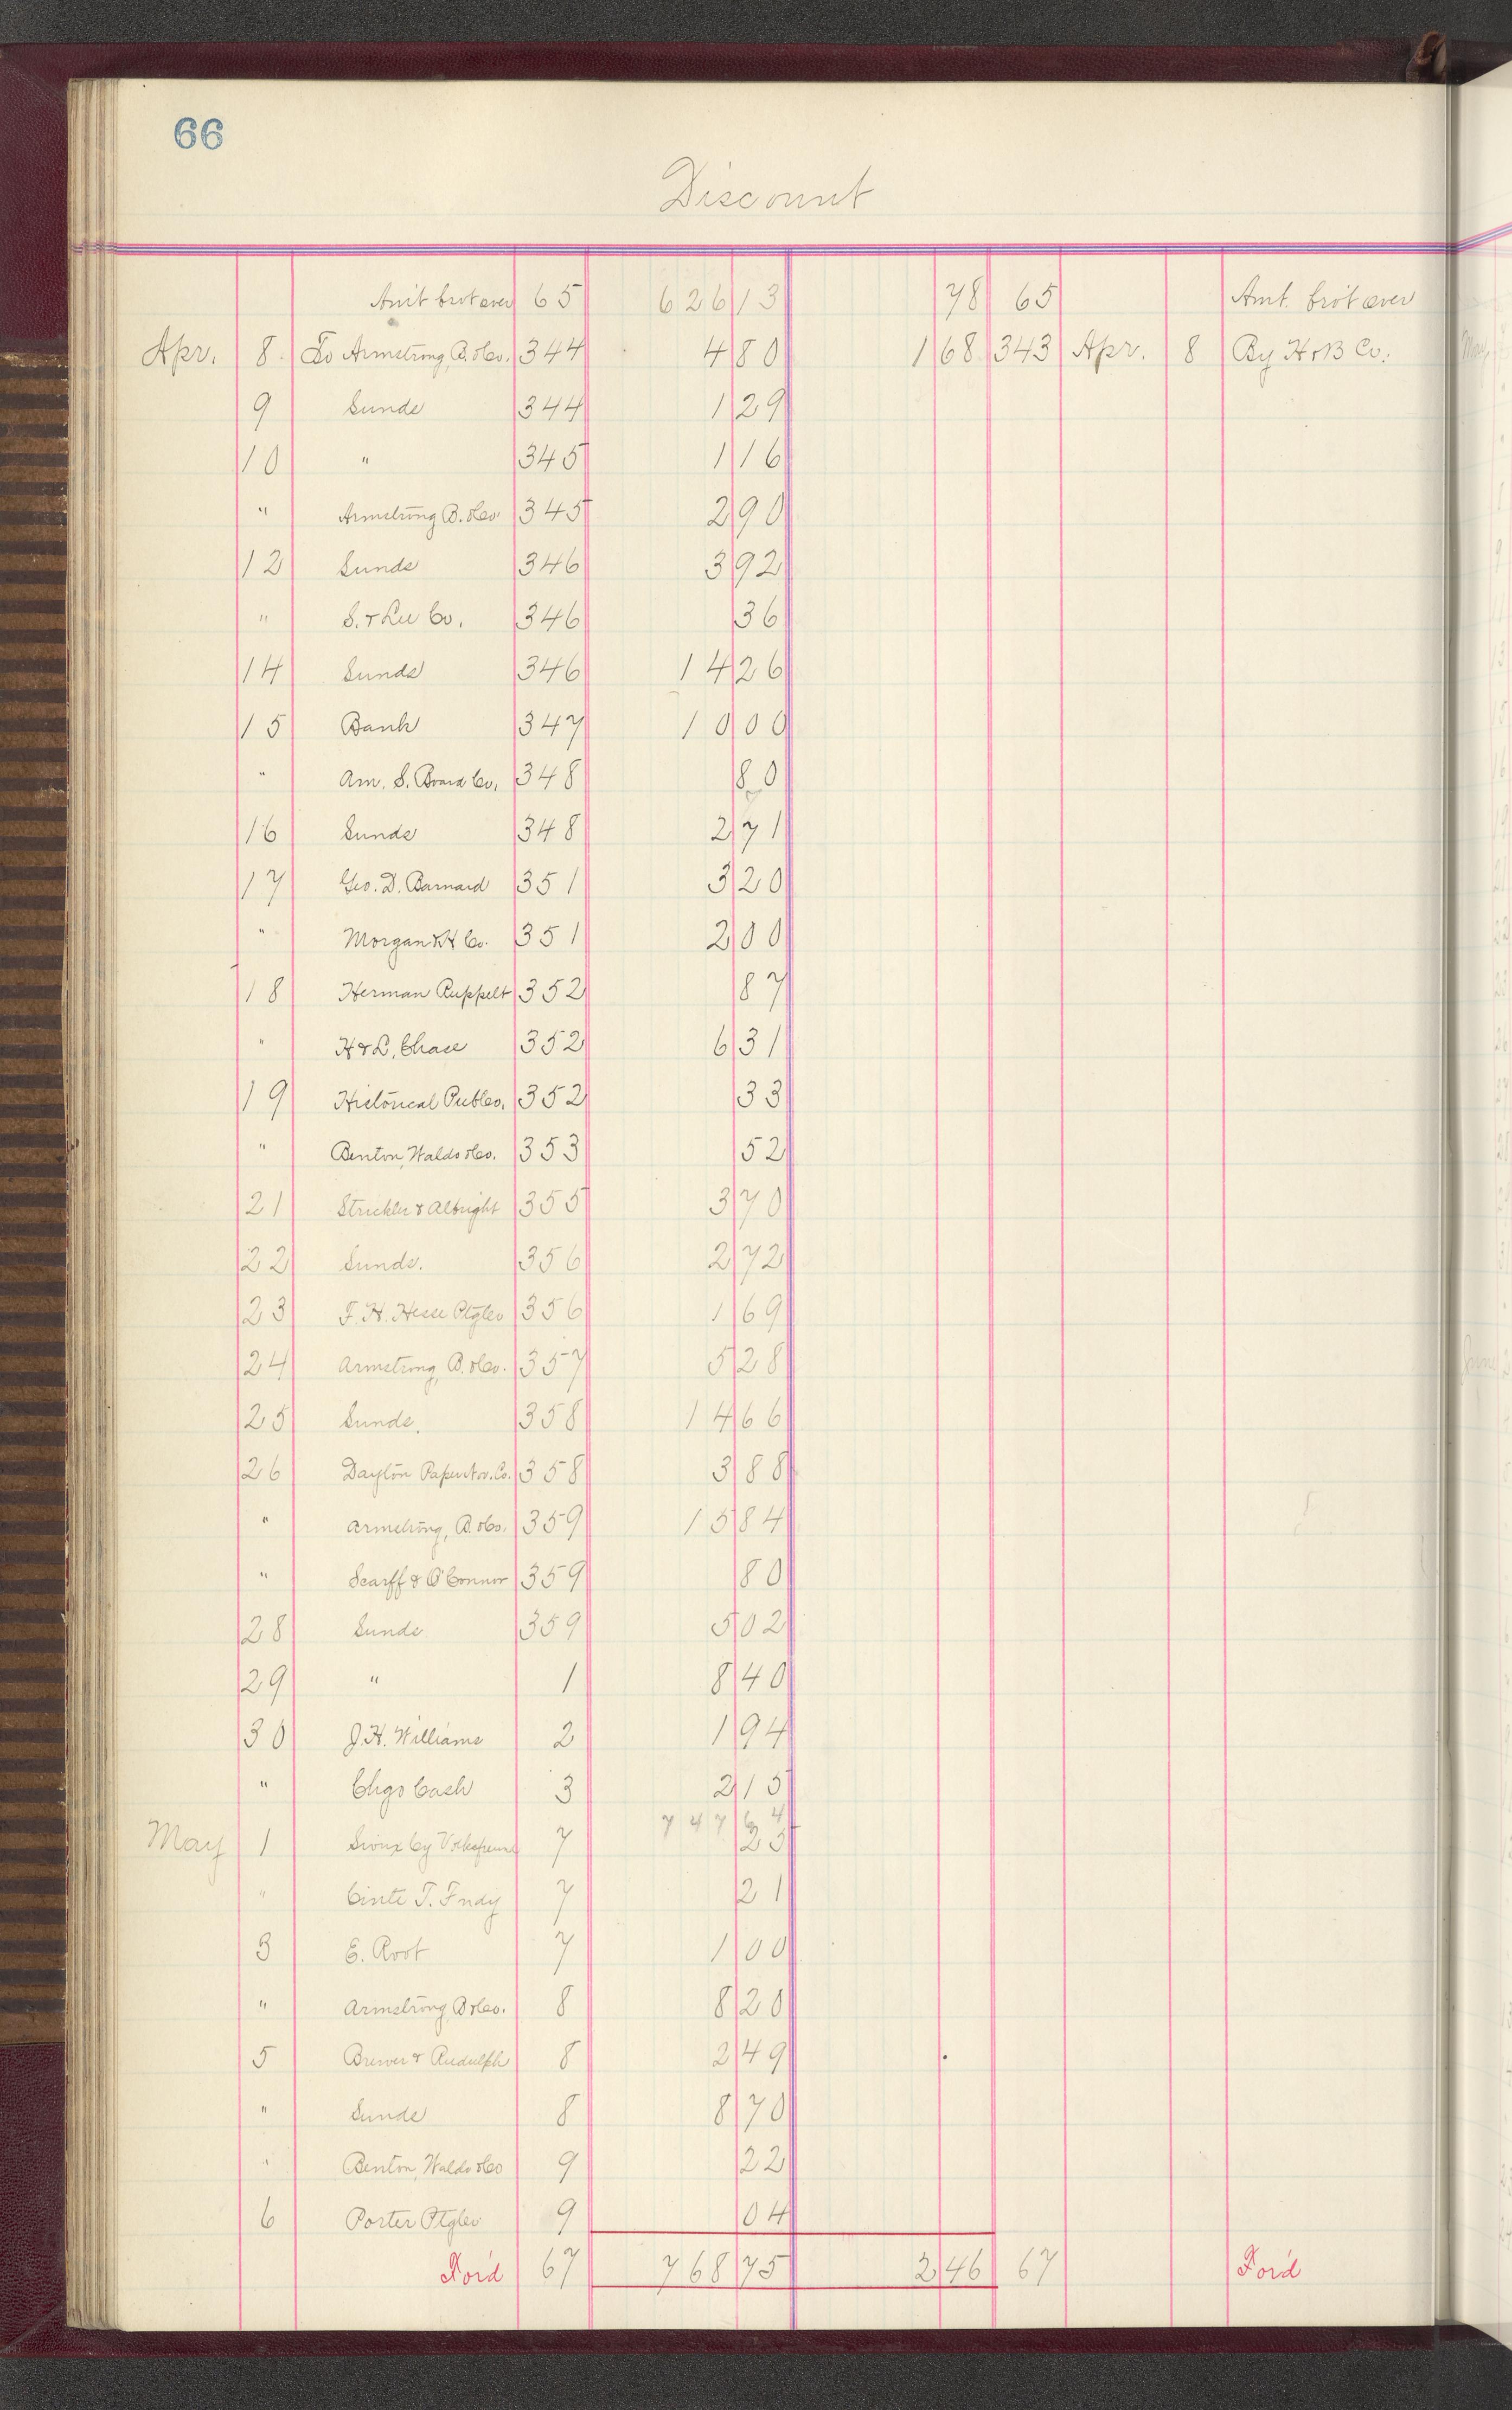 66
Discount
Am't brot over 65 626 13 78 65 Amt. bro't over
Apr. 8 To Armstrong, B. & Co. 344 4 80 1 68 343 Apr. 8 By H & B Co.
9 Sunds 344 1 29
10 " 345 1 16
" Armstrong B. & Co. 345 2 90
12 Sunds 346 3 92
" S. & Lee Co. 346 36
14 Sunds 346 14 26
15 Bank 347 10 00
" Am. S. Board Co. 348 80
16 Sunds 348 2 71
17 Geo. D. Barnard 351 3 20
" Morgan & H Co. 351 2 00
18 Herman Ruppelt 352 87
" H & L. Chase 352 6 31
19 Historical Pub Co. 352 33
" Benton, Waldo & Co. 353 52
21 Strickler & Albright 355 3 70
22 Sunds. 356 2 72
23 F. H. Hesse Ptg Co 356 1 69
24 Armstrong, B. & Co. 357 5 28
25 Sunds. 358 14 66
26 Dayton Paper Nov. Co. 358 3 88
" Armstrong, B. & Co. 359 15 84
" Scarff & O'Connor 359 80
28 Sunds 359 5 02
29 " 1 8 40
30 J. H. Williams 2 1 94
" Chgo Cash 3 2 15
747 64
May 1 Sioux Cy Volksfreund 7 25
" Cinti T. Fndy 7 21
3 E. Root 7 1 00
" Armstrong B & Co. 8 8 20
5 Brewer & Rudulph 8 2 49
" Sunds 8 8 70
" Benton, Waldo & Co 9 22
6 Porter Ptg Co 9 04
For'd 67 768 75 2 46 67 For'd